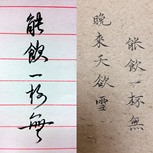 能飲一杯無
晚来天欲雪
能飲一杯無